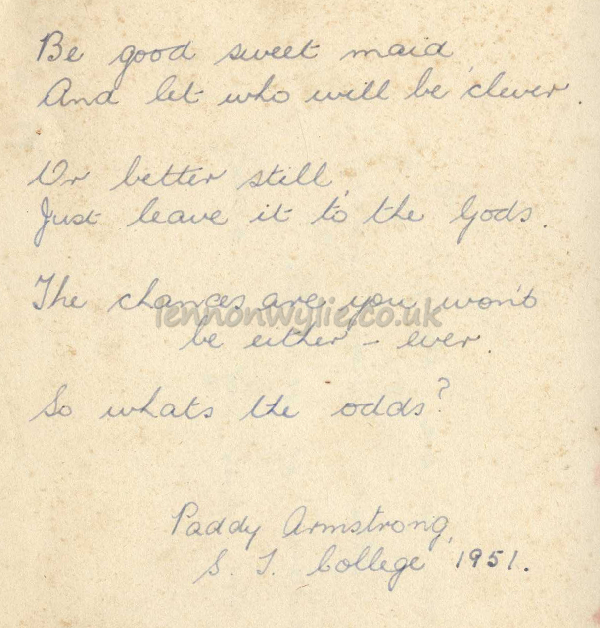 Be good sweet maid,
And let who will be clever.
Or better still,
Just leave it to the Gods.
The chances are, you won't
lennonwylie.co.uk
be either – ever.
So whats the odds?
Paddy Armstrong,
S. T. College, 1951.